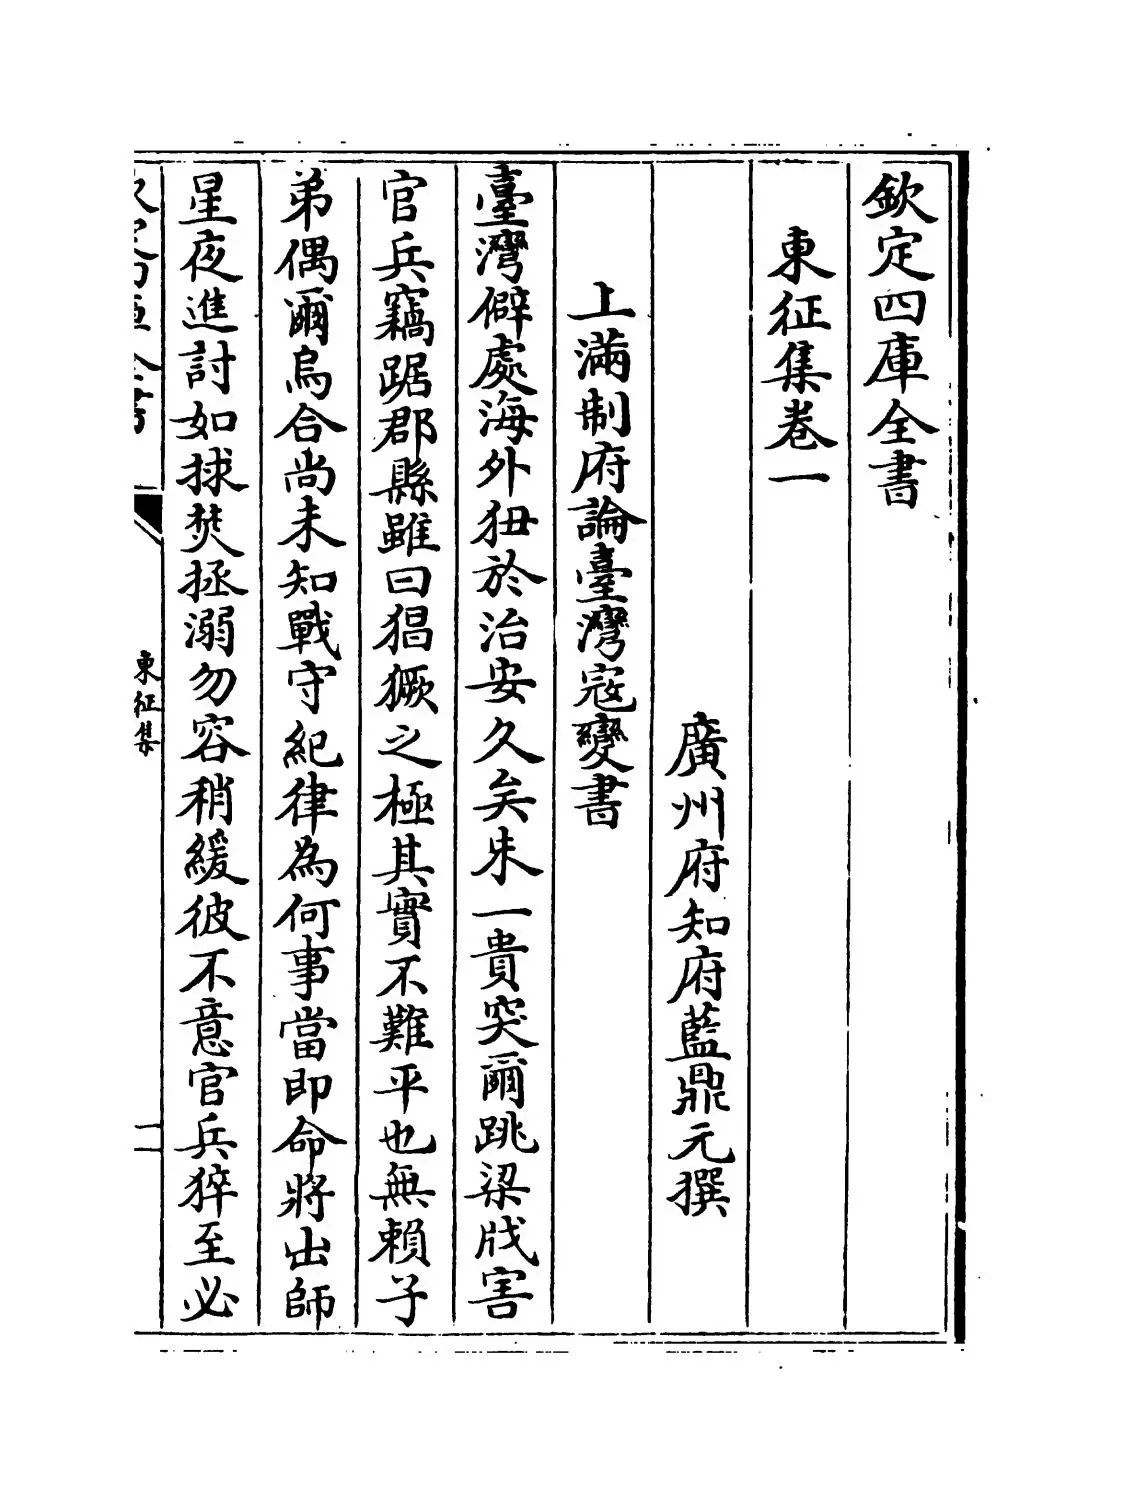 欽定四庫全書
東征集卷一
廣州府知府藍鼎元撰
上滿制府論臺灣寇變書
臺灣僻處海外狃於治安久矣朱一貴突爾跳梁戕害
官兵竊踞郡縣雖曰猖獗之極其實不難平也無賴子
弟偶爾烏合尚未知戰守紀律為何事當即命將出師
星夜進討如捄焚拯溺勿容稍緩彼不意官兵猝至必
欽定四庫全書
東征集
一